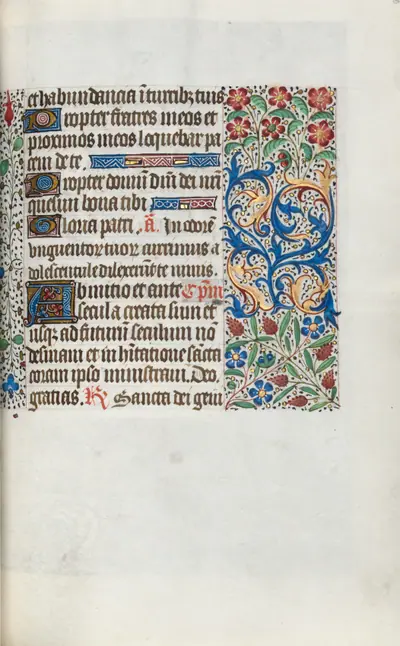 et habundancia ī turribz tuis
Propter fratres meos et
proximos meos loquebar pa
cem de te.
Propter domū dnī dei nrī
quesiui bona tibi
Gloria patri. ā. In odorē
vnguentorum tuorum currimus a
dolescentule dilexerunt te nimis.
Ab inicio et ante Cplm
secula creata sum et
usqz ad futurum seculum nō
desinam et in hītatione sācta
coram ipso ministraui. Deo
gratias. R Sancta dei geni